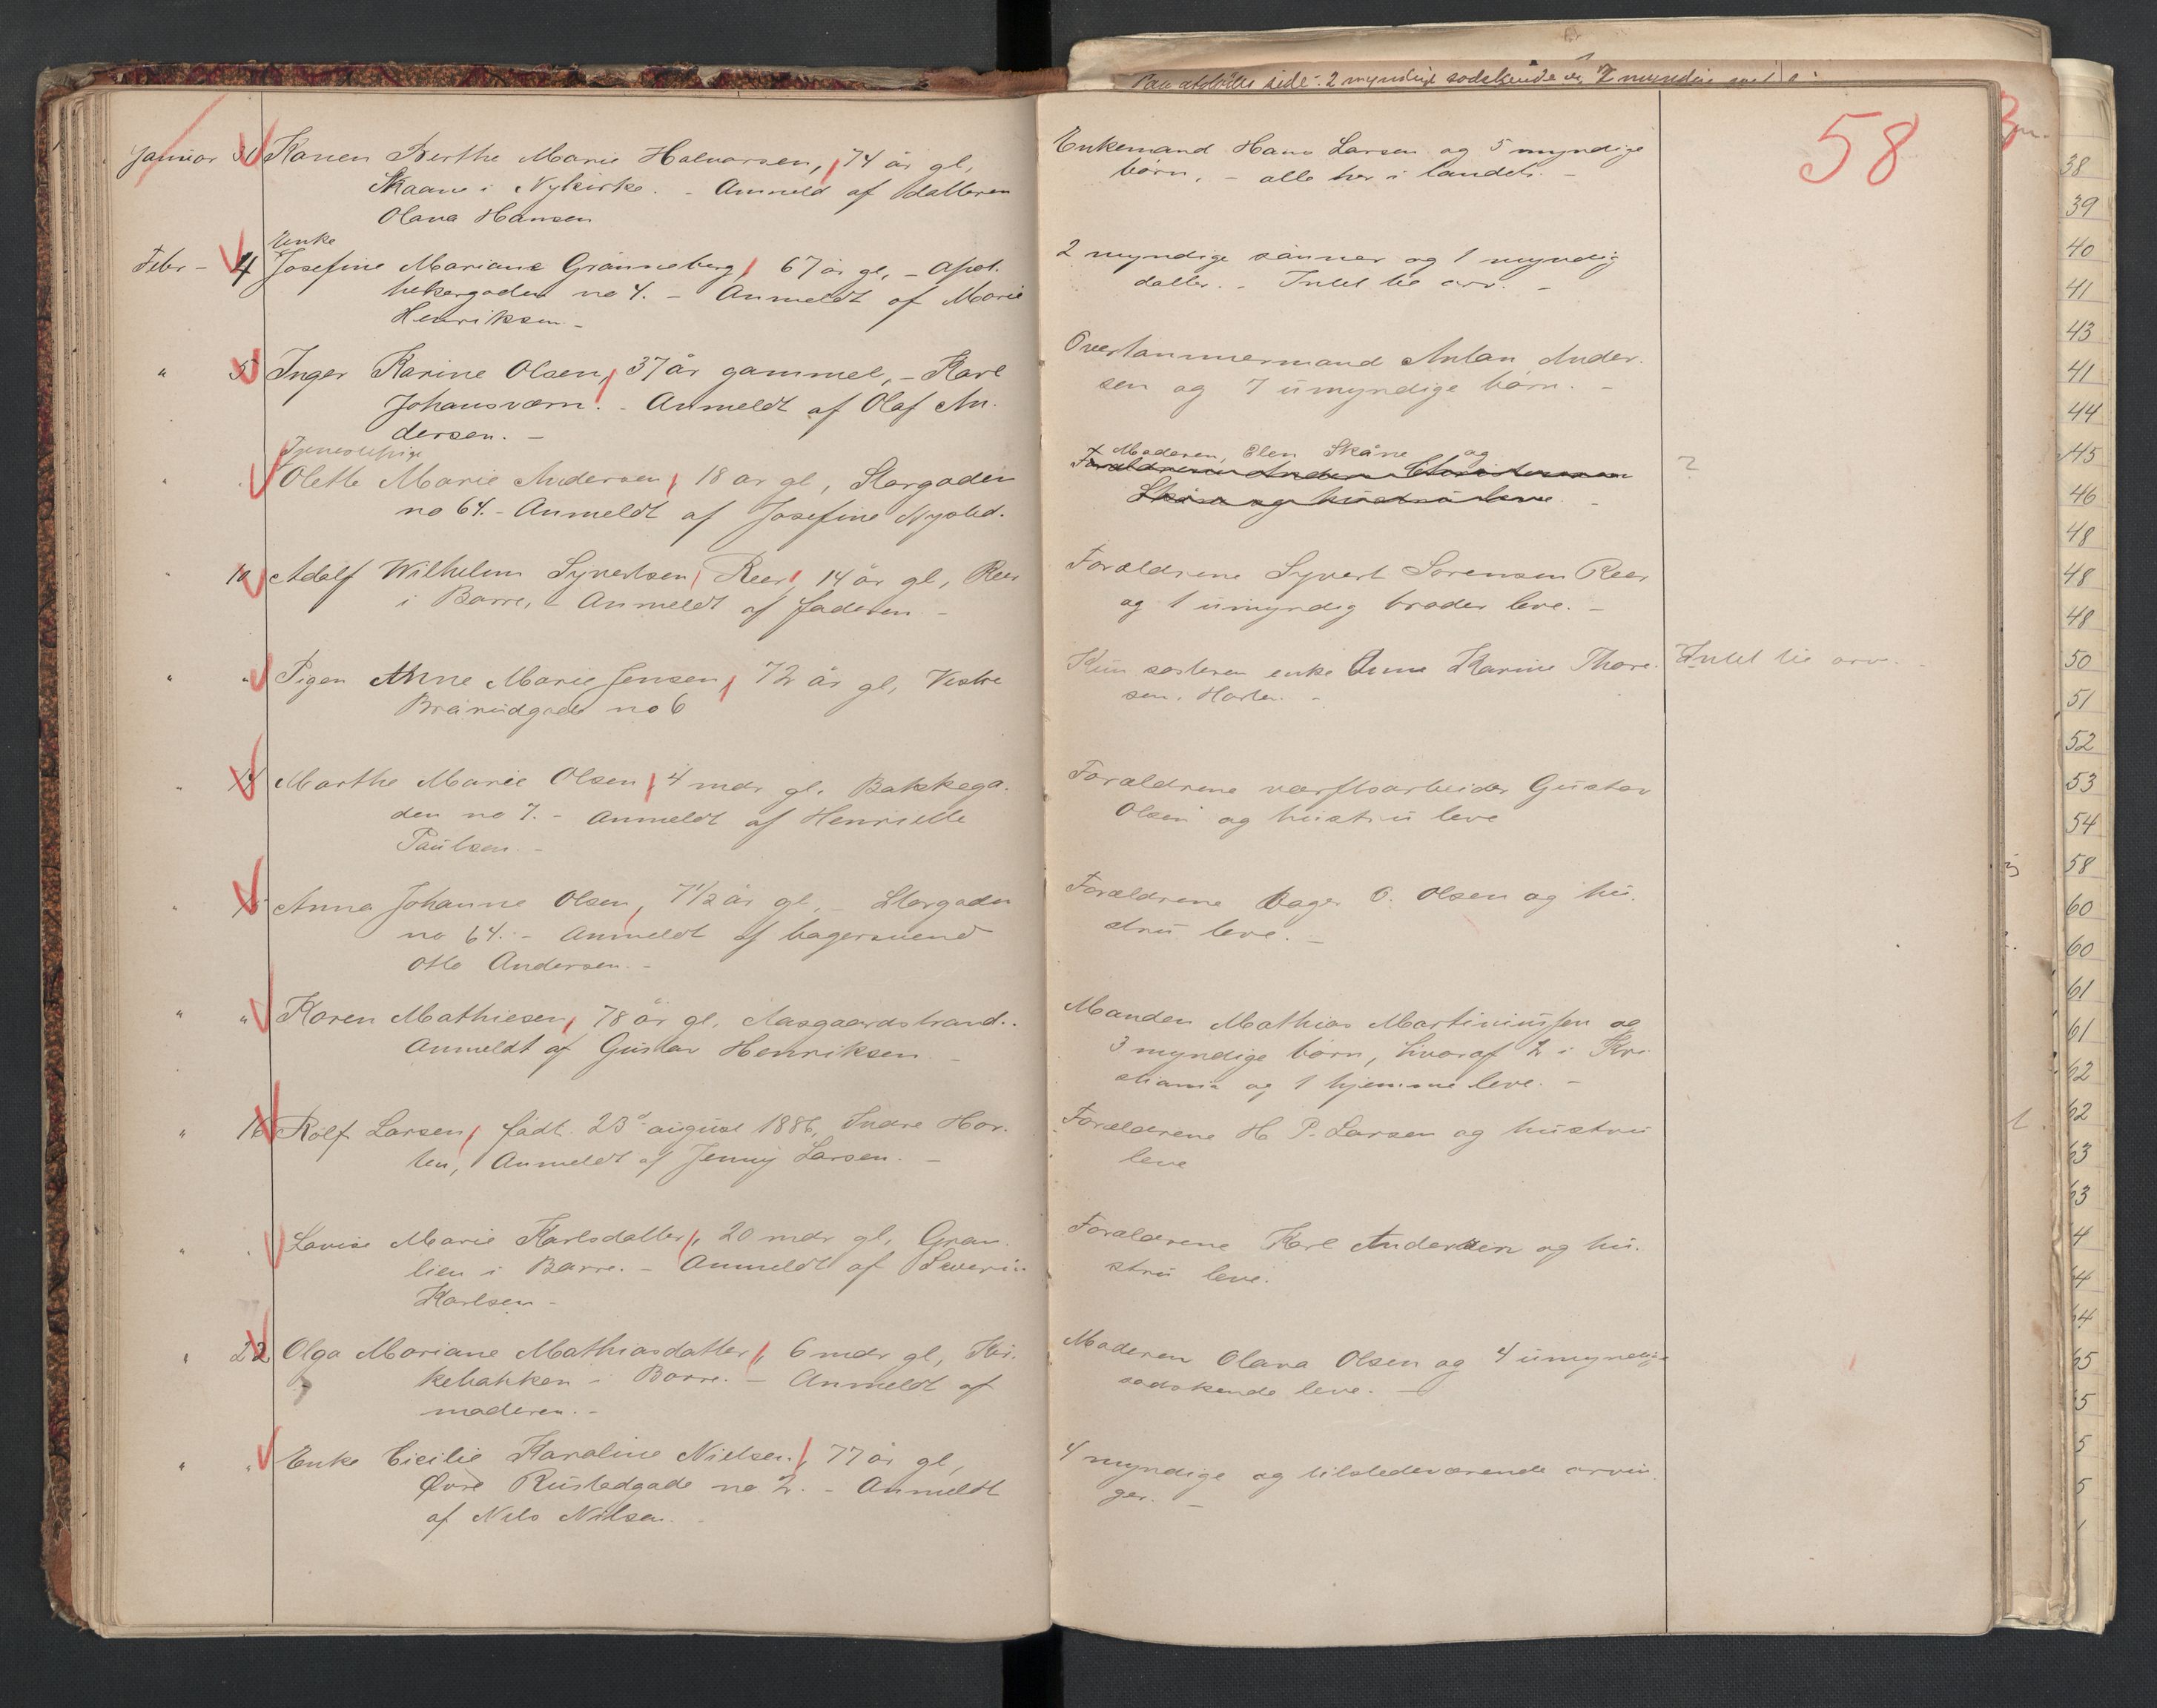 Paa afskilte side: 2 myndige sødskende og
58
Januar 31 Karen Berthe Marie Halvorsen, 74 år gl,
Skaane i Nykirke. - Anmeld af datteren
Olava Hansen
Enkemand Hans Larsen og 5 myndige
børn, - alle her i landet. -
Enke
Febr - 4 Josefine Mariane Grønneberg, 67 år gl, - Apot.
hekergaden no 4. - Anmeldt af Marie
Henriksen. -
2 myndige sønner og 1 myndig
datter. - Intet til arv. -
" 5 Inger Karine Olsen, 37 år gammel, - Karl
Johansværn. - Anmeldt af Olaf An.
dersen. -
Overtømmermand Anton Ander.
sen og 7 umyndige børn. -
Tjenestepige
" " Olette Marie Andersen, 18 år gl, Storgaden
no 64. - Anmeldt af Josefine Nysted.
Moderen, Elen Skåne og
Forældrene Anders Christensen
Skåne og hustru leve. -
?
" 10 Adolf Wilhelm Syvertsen, Reer, 14 år gl, Reer
i Borre, - Anmeldt af faderen -
Forældrene Syvert Sorensen Reer
og 1 umyndig broder leve. -
" " Pigen Anne Marie Jensen, 72 år gl, Vestre
Brårudgade no 6
Kun søsteren enke Anne Karine Thore.
sen, Horten. -
Intet til arv. -
" 14 Marthe Marie Olsen, 4 mdr gl, Bakkega.
den no 7. - Anmeldt af Henriette
Paulsen. -
Forældrene værftsarbeider Gustav
Olsen og hustru leve
" 15 Anna Johanne Olsen, 7 1/2 år gl, - Storgaden
no 64. - Anmeldt af bagersvend
Otto Andersen. -
Forældrene bager O. Olsen og hu.
stru leve. -
" " Karen Mathiesen, 78 år gl, Aasgaardstrand.
Anmeldt af Gustav Henriksen. -
Manden Mathias Martiniussen og
3 myndige børn, hvoraf 2 i Kri
stiania og 1 hjemme leve. -
" 16 Rolf Larsen, født 23d august 1886, Indre Hor.
ten, Anmeldt af Jenny Larsen. -
Forældrene H P. Larsen og hustru
leve
" " Lovise Marie Karlsdatter, 20 mdr gl, Gran.
lien i Borre. - Anmeldt af Severin
Karlsen -
Forældrene Karl Andersen og hu.
stru leve.
" 22 Olga Mariane Mathiasdatter, 6 mdr gl, Kir.
kebakken i Borre. - Anmeldt af
moderen. -
Moderen Olava Olsen og 4 umyndige
sødskende leve. -
" " Enke Cicilie Karoline Nielsen, 77 år gl,
Øvre Rustadgade no 2. - Anmeldt
af Nils Nilsen. -
4 myndige og tilstedeværende arvin.
ger. -
38
39
40
41
43
41
44
45
46
48
48
48
50
51
52
53
54
58
60
60
61
61
62
62
63
63
4
64
64
65
5
5
5